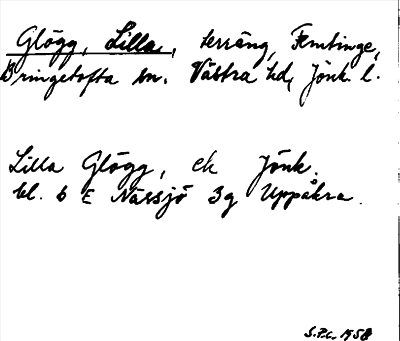 Glögg, Lilla, terräng, Femtinge,
Bringetofta sn. Västra hd, Jönk. l.
Lilla Glögg, ek Jönk.
bl. 6 E Nässjö 3g Uppåkra.
S.P.L. 1958